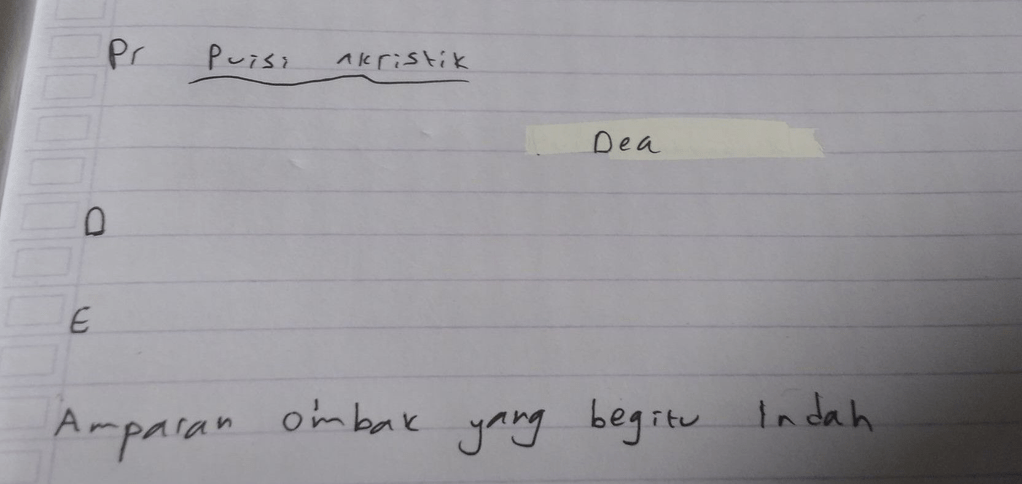 Pr Puisi Akristik
Dea
D
E
Amparan ombak yang begitu Indah